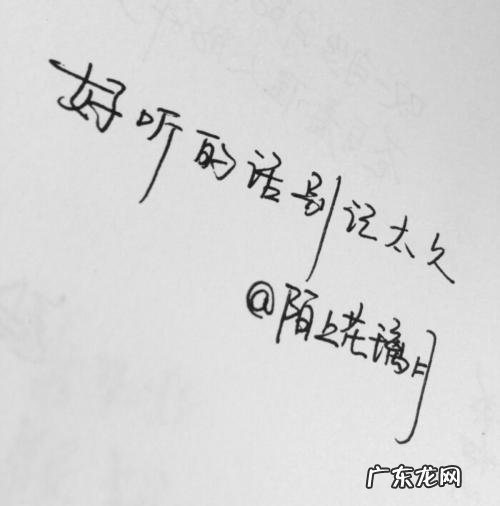 好听的话别记太久
@陌上花璃月
广东龙网